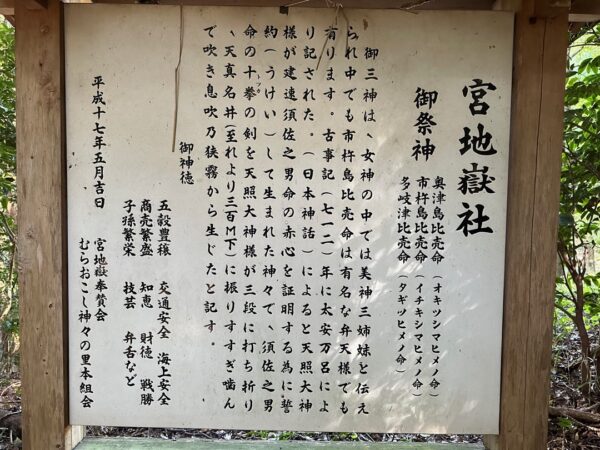 宮地嶽社
御祭神
奥津島比売命(オキツシマヒメノ命)
市杵島比売命(イチキシマヒメノ命)
多岐津比売命(タギツヒメノ命)
御三神は、女神の中では美神三姉妹と伝え
られ中でも市杵島比売命は有名な弁天様でも
有ります。古事記(七一二)年に太安万呂によ
り記された。(日本神話)によると天照大神
様が建速須佐之男命の赤心を証明する為に誓
約(うけい)して生まれた神々で、須佐之男
命の十拳の剣を天照大神様が三段に打ち折り
、天真名井(至れより三百M下)に振りすすぎ噛ん
で吹き息吹乃狭霧から生じたと記す。
御神徳
五穀豊穣 交通安全 海上安全
商売繁盛 知恵 財徳 戦勝
子孫繁栄 技芸 弁舌など
平成十七年五月吉日
宮地嶽奉賛会
むらおこし神々の里本組会